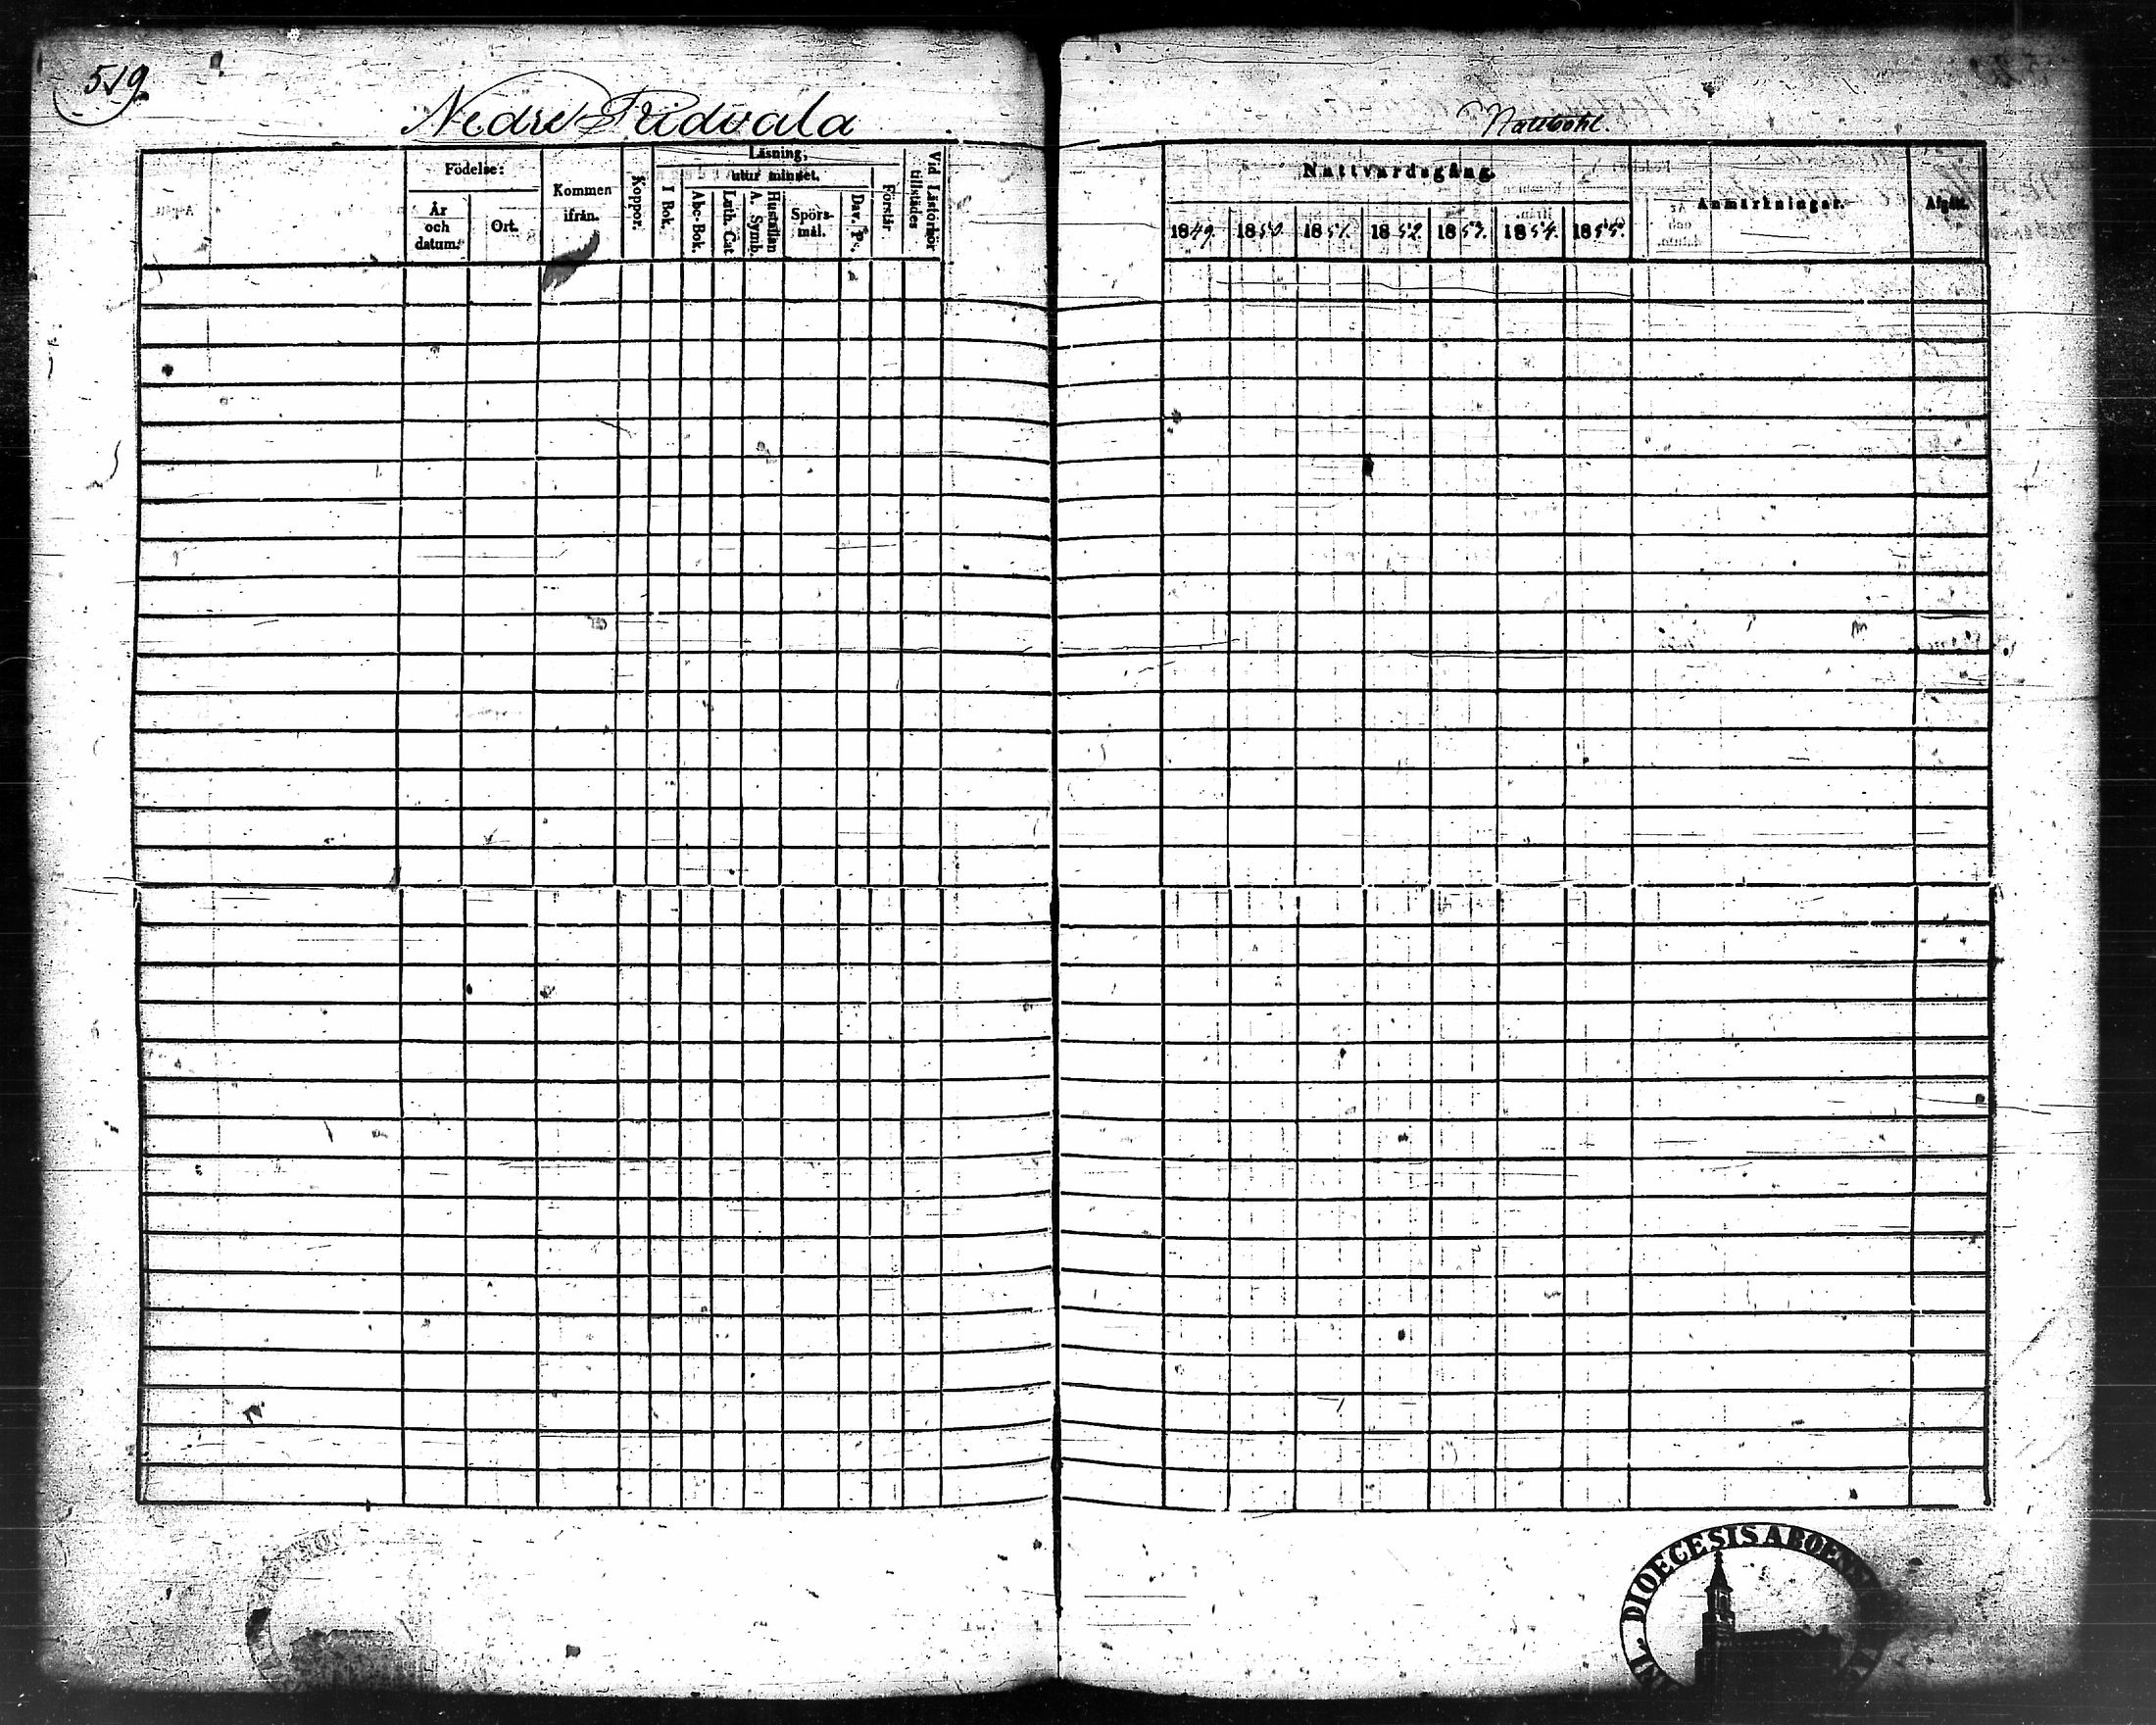 519
Nedre Ridvala
Födelse:
År och datum.
Ort.
Kommen ifrån.
Koppor.
Läsning,
utur minnet.
I Bok.
Abc-Bok.
Luth. Cat
Hustaflan A. Symb.
Spörs-mål.
Dav. Ps.
Förstår
Vid Läsförhör tillstädes
Nattvardsgång.
1849. 1850. 1851. 1852. 1853. 1854. 1855.
Anmärkningar.
Afgått.
DIOECESIS ABOEN